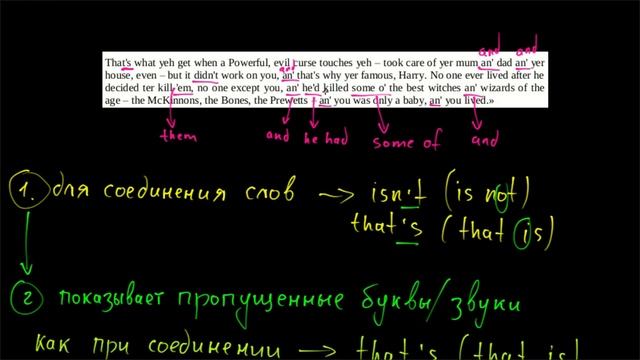 and and
That's what yeh get when a Powerful, evil curse touches yeh – took care of yer mum an' dad an' yer
and
house, even – but it didn't work on you, an' that's why yer famous, Harry. No one ever lived after he
decided ter kill 'em, no one except you, an' he'd killed some o' the best witches an' wizards of the
age – the McKinnons, the Bones, the Prewetts – an' you was only a baby, an' you lived.»
them and he had some of and
1. для соединения слов → isn't (is not)
that's (that is)
2 показывает пропущенные буквы/звуки
как при соединении → that's (that is)